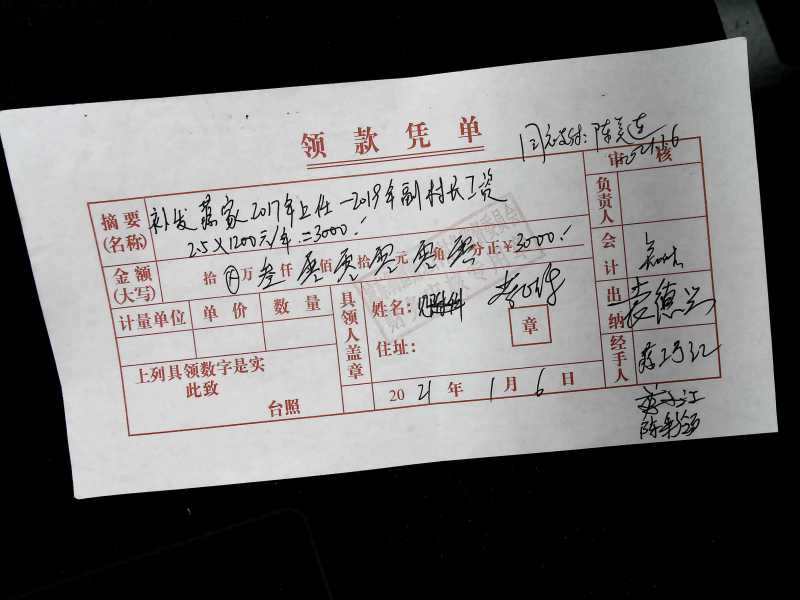 领款凭单
同意支付：陈
2021.1.6
审核
摘要(名称) 补发蒋家2017年上任一2019年副村长工资
2.5×1200元/年=3000.
金额(大写) 拾 万叁仟零佰零拾零元零角零分正￥3000.
计量单位 单价 数量
具领人盖章
姓名：
住址：
章
负责人
会计
出纳 袁德兰
经手人
上列具领数字是实
此致
台照
2021年1月6日